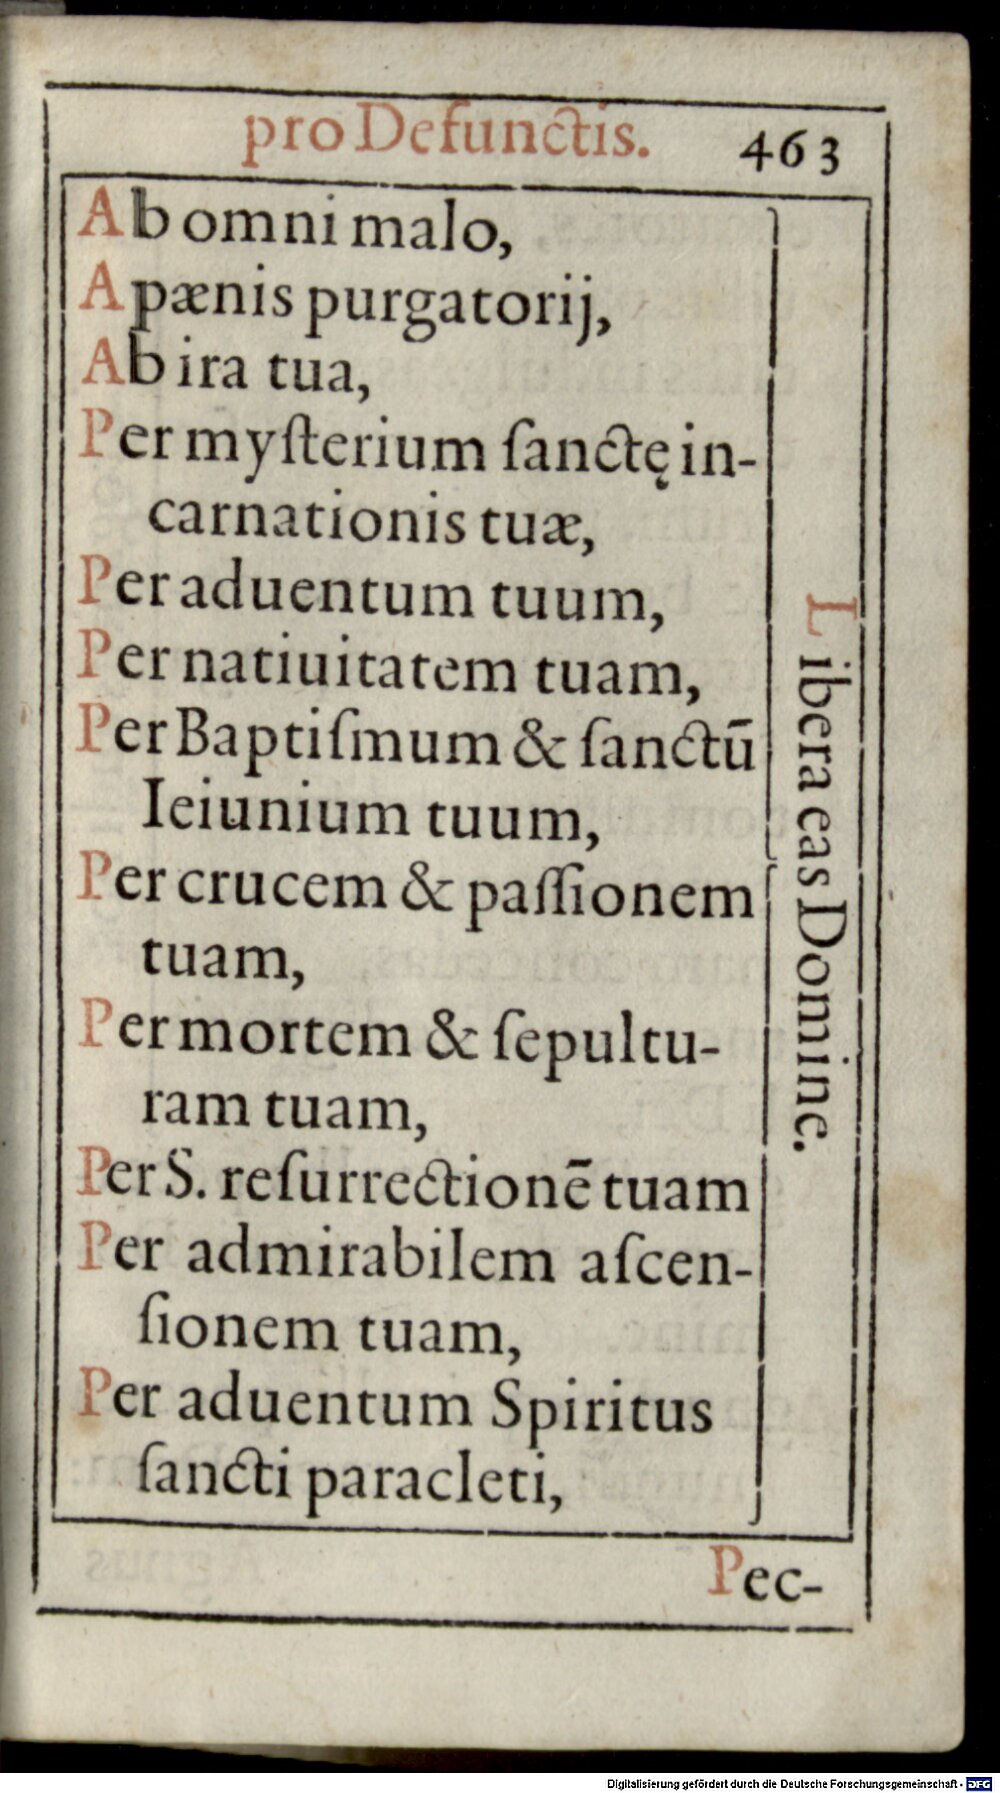 pro Defunctis. 463
Ab omni malo,
A pænis purgatorij,
Ab ira tua,
Per myſterium ſanctę in-
carnationis tuæ,
Per aduentum tuum,
Per natiuitatem tuam,
Per Baptiſmum & ſanctū
Ieiunium tuum,
Per crucem & paſſionem
tuam,
Per mortem & ſepultu-
ram tuam,
Per S. reſurrectionē tuam
Per admirabilem aſcen-
ſionem tuam,
Per aduentum Spiritus
ſancti paracleti,
Libera eas Domine.
Pec-
Digitalisierung gefördert durch die Deutsche Forschungsgemeinschaft - DFG